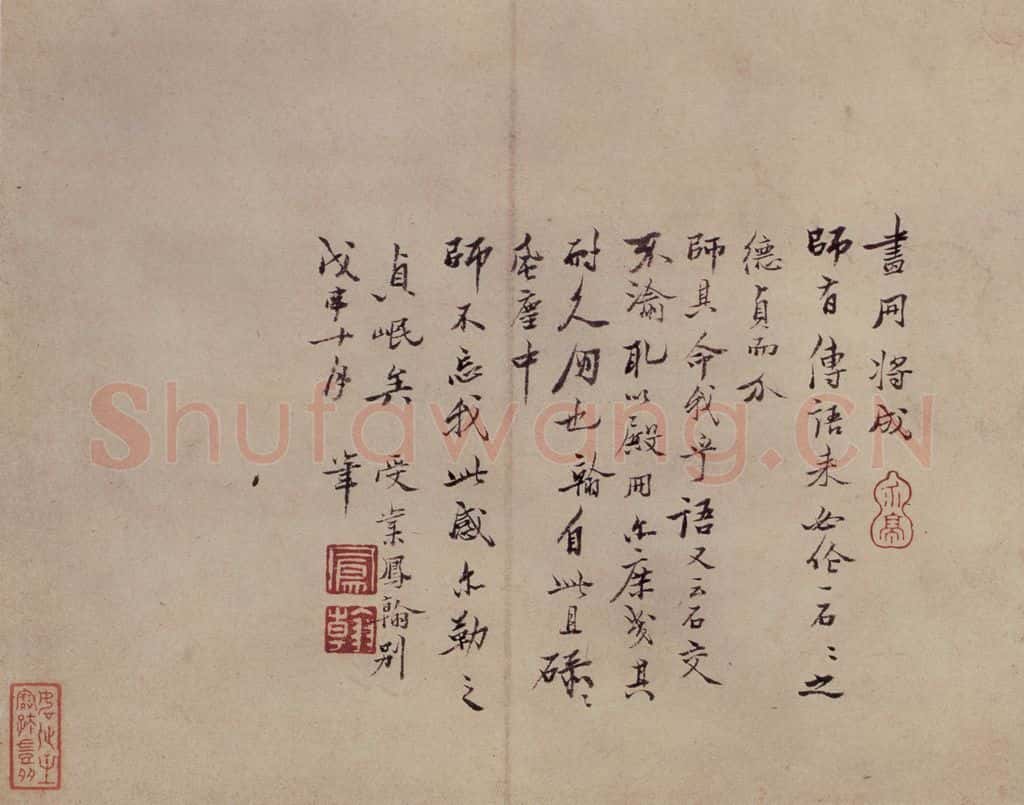 畫冊將成
師有傳語一石〻之
德貞而介
師其命我乎語又云石交
不渝取以殿冊尔庶幾其
耐久朋也翰自此且碌〻
塵中
師不忘我此感尔勒之
貞岷矣受業鳳翰别
戊申十月 筆
鳳翰
Shufawang.CN